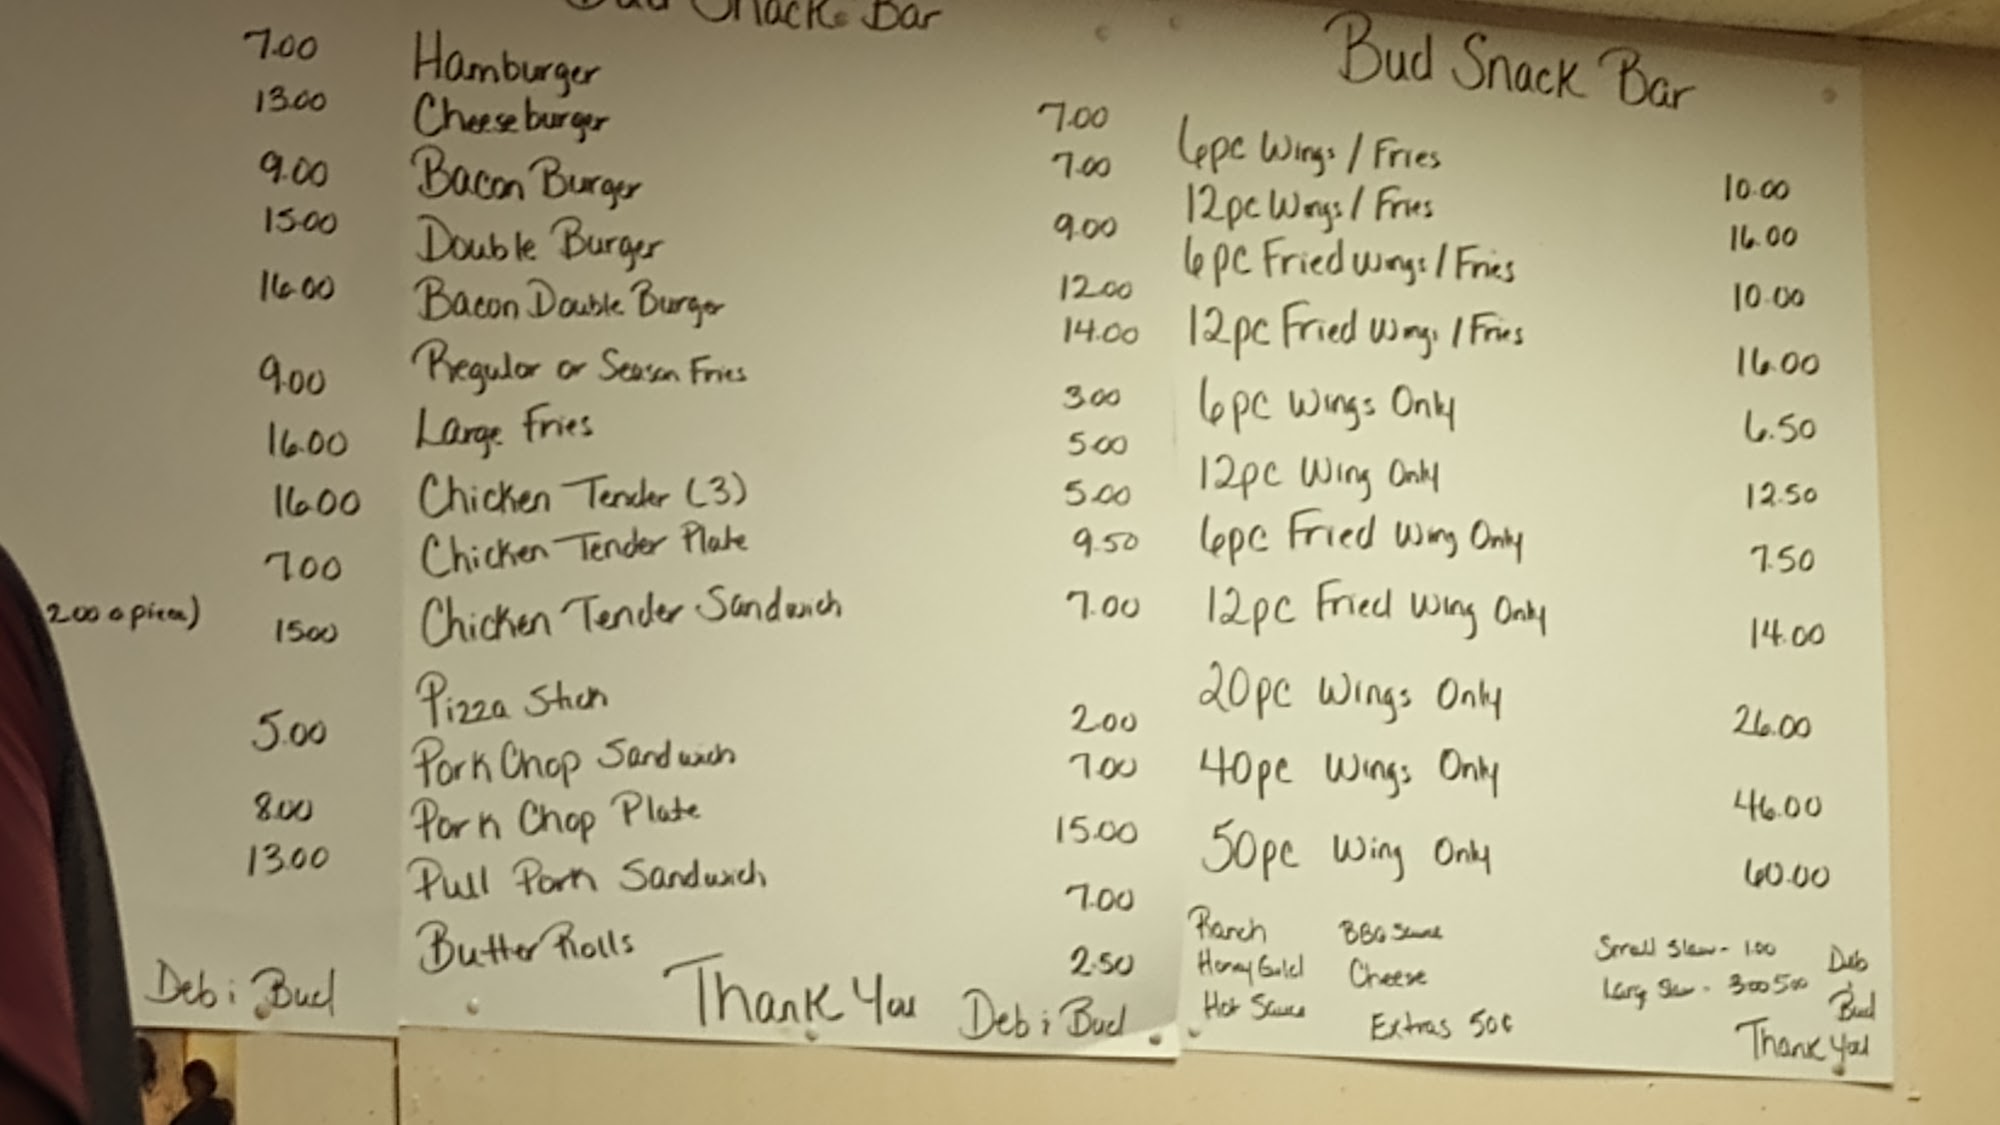 7.00
13.00
9.00
15.00
16.00
9.00
16.00
16.00
7.00
2.00 a piece) 15.00
5.00
8.00
13.00
Deb i Bud
Bud Snack Bar
Hamburger 7.00
Cheeseburger 7.00
Bacon Burger 9.00
Double Burger 12.00
Bacon Double Burger 14.00
Regular or Season Fries 3.00
Large Fries 5.00
Chicken Tender (3) 5.00
Chicken Tender Plate 9.50
Chicken Tender Sandwich 7.00
Pizza Stick 2.00
Pork Chop Sandwich 7.00
Pork Chop Plate 15.00
Pull Pork Sandwich 7.00
Butter Rolls 2.50
Thank You Deb i Bud
Bud Snack Bar
6pc Wings / Fries 10.00
12pc Wings / Fries 16.00
6pc Fried Wings / Fries 10.00
12pc Fried Wings / Fries 16.00
6pc Wings Only 6.50
12pc Wing Only 12.50
6pc Fried Wing Only 7.50
12pc Fried Wing Only 14.00
20pc Wings Only 26.00
40pc Wings Only 46.00
50pc Wing Only 60.00
Ranch BBQ Sauce Small Slaw - 1.00
Honey Gold Cheese Large Slaw - 300 500
Hot Sauce Extras 50¢
Deb i Bud
Thank You